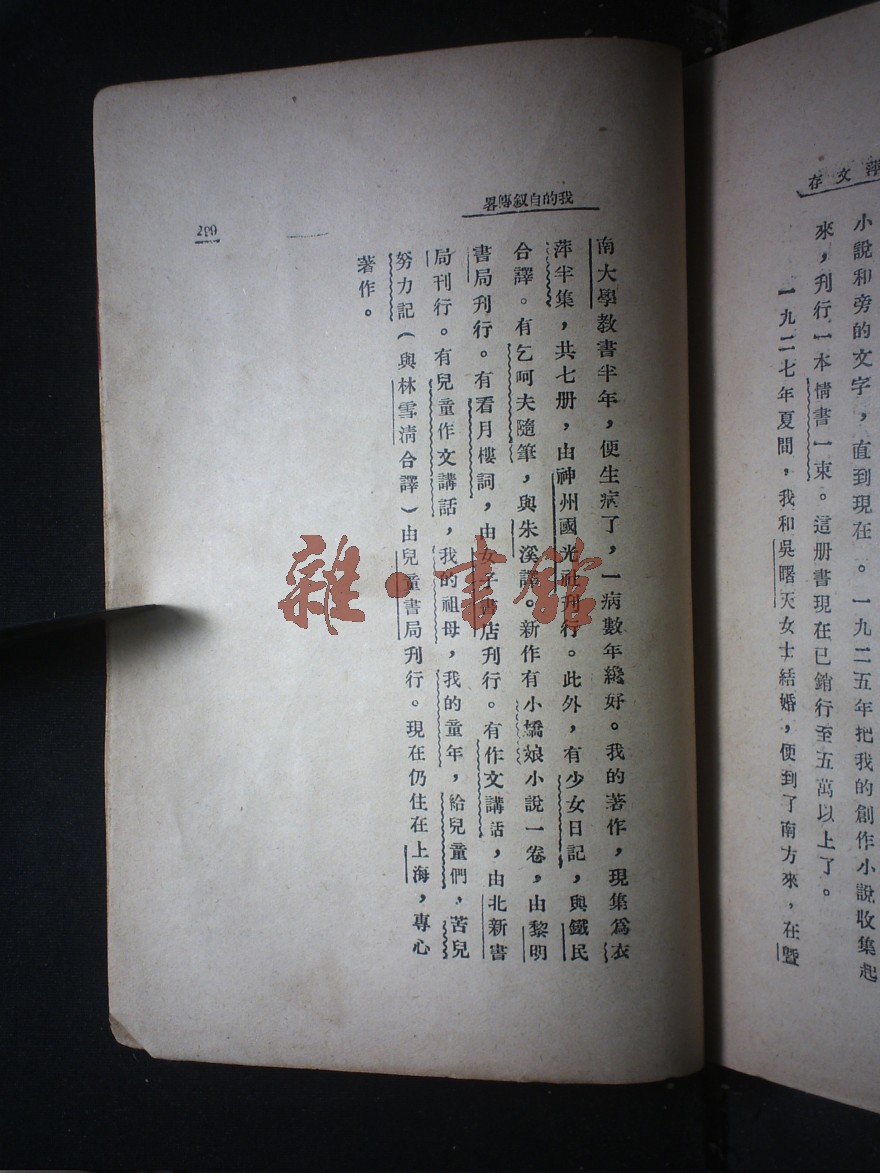 文存
小說和旁的文字，直到現在。一九二五年把我的創作小說收集起
來，刊行一本情書一束。這册書現在已銷行至五萬以上了。
一九二七年夏間，我和吳曙天女士結婚，便到了南方來，在暨
我的自叙傳畧
南大學教書半年，便生病了，一病數年纔好。我的著作，現集爲衣
萍半集，共七册，由神州國光社刊行。此外，有少女日記，與鐵民
合譯。有乞呵夫隨筆，與朱溪譯。新作有小嬌娘小說一卷，由黎明
書局刊行。有看月樓詞，由女子書店刊行。有作文講話，由北新書
局刊行。有兒童作文講話，我的祖母，我的童年，給兒童們，苦兒
努力記（與林雪清合譯）由兒童書局刊行。現在仍住在上海，專心
著作。
雜·書館